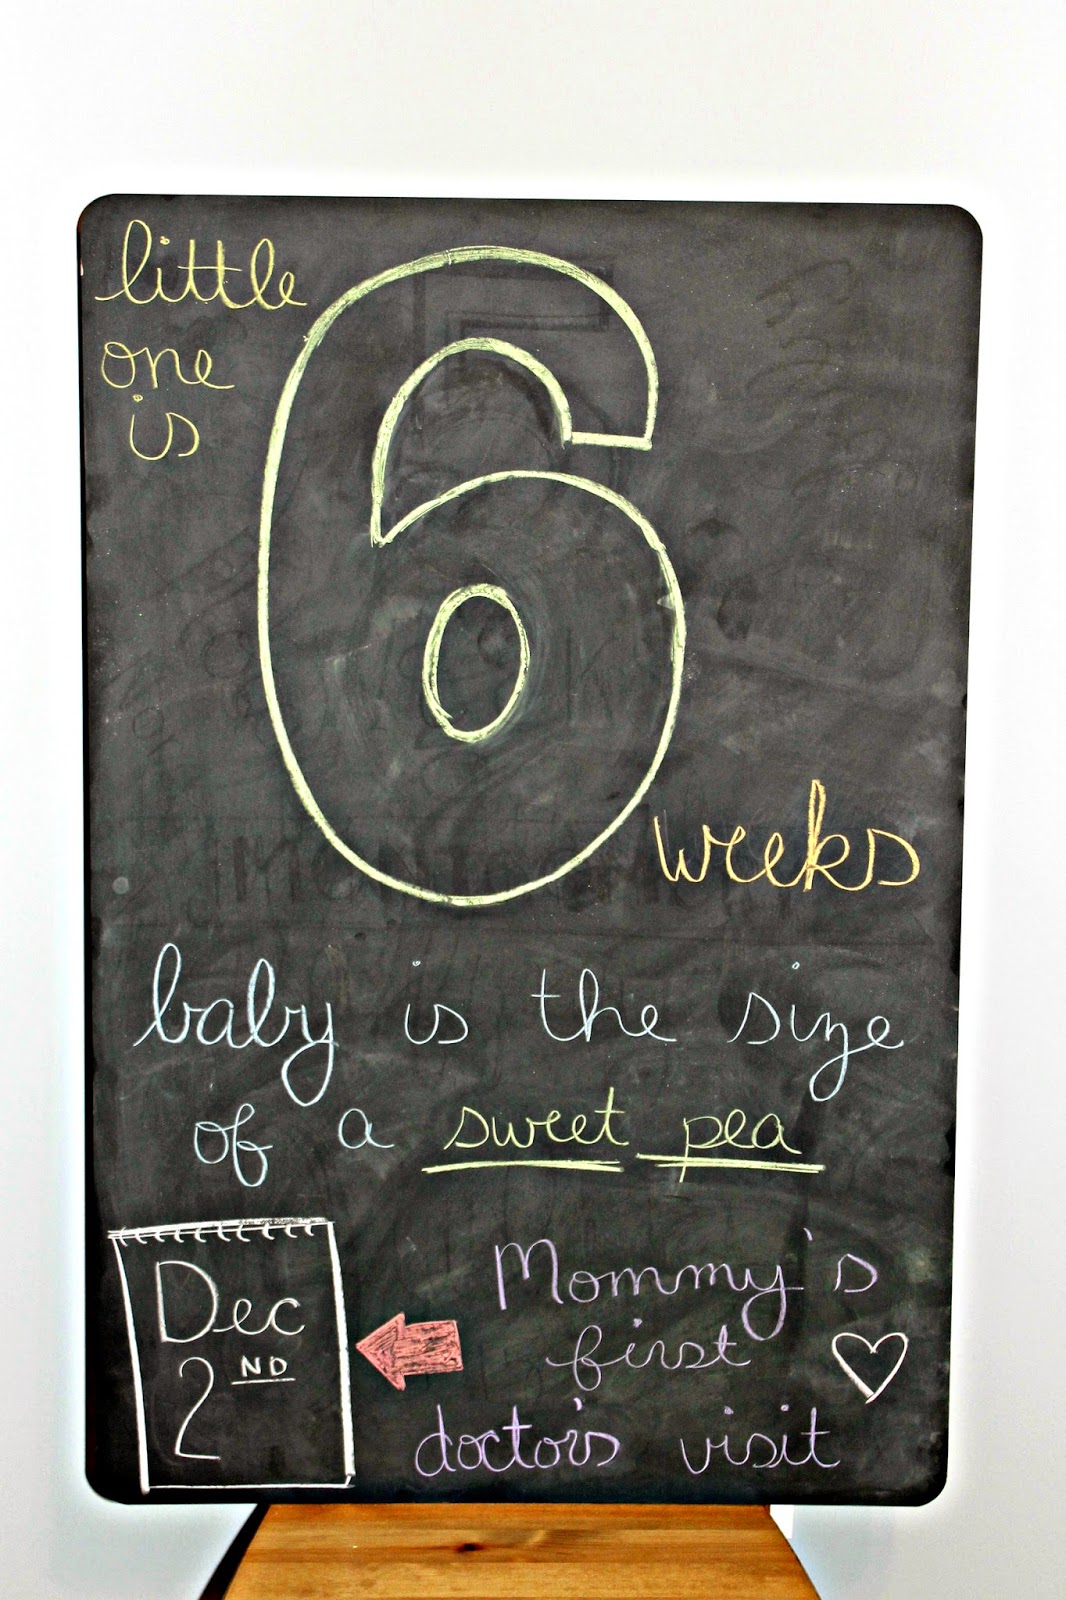 little
one
is
6
weeks
baby is the size
of a sweet pea
Dec
2ND
Mommy's
first
doctor's visit